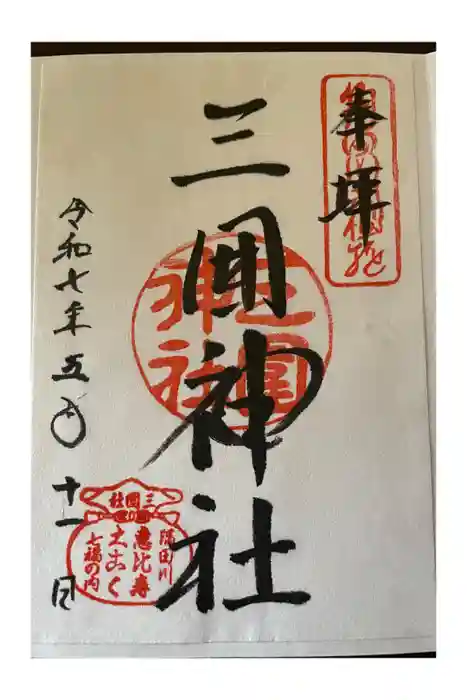 奉拝
三囲神社
三囲神社
令和七年五月十一日
三囲社
隅田川
恵比寿
大こく
七福の内